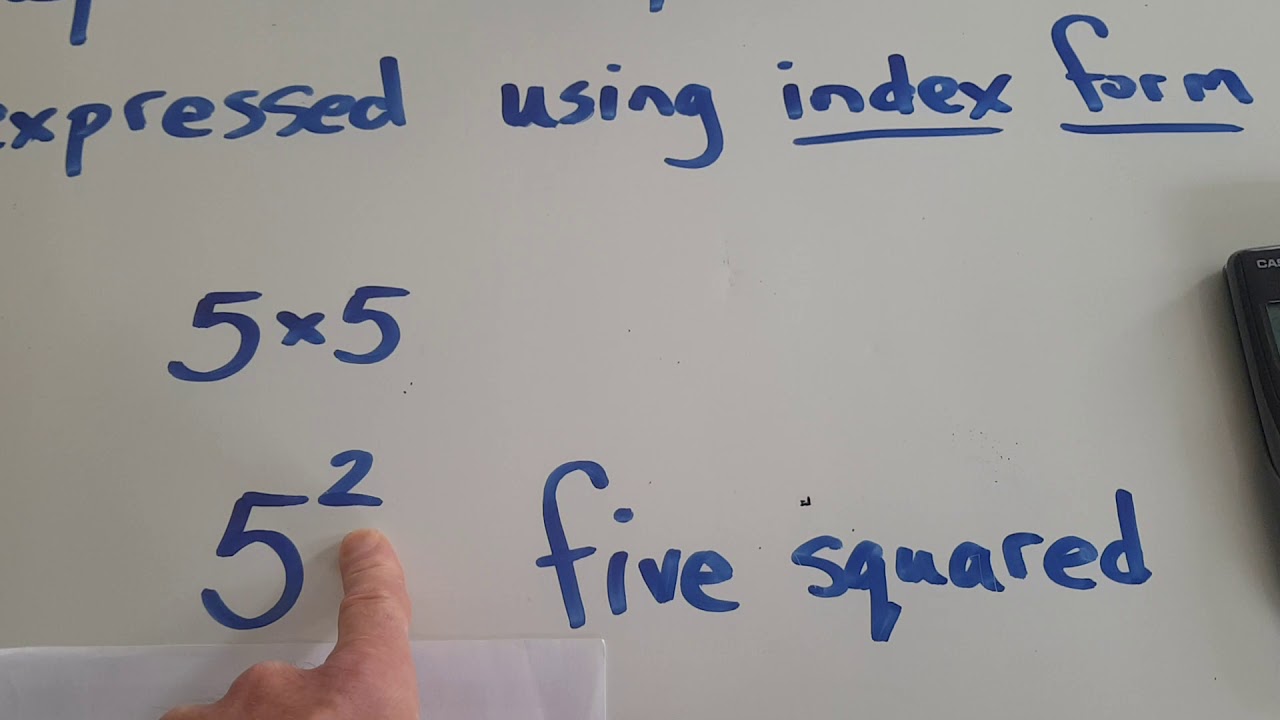 expressed using index form
5×5
5² five squared